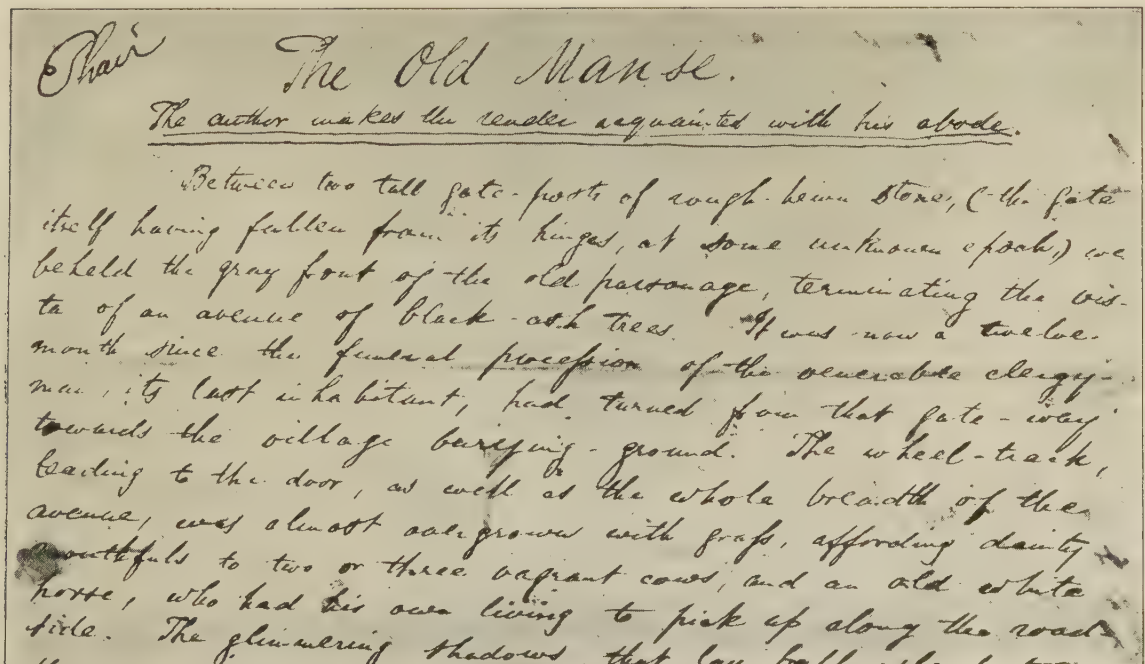 Phair
The Old Manse.
The author makes the reader acquainted with his abode.
Between two tall gate-posts of rough-hewn stone, (the gate
itself having fallen from its hinges, at some unknown epoch,) we
beheld the gray front of the old parsonage, terminating the vis-
ta of an avenue of black-ash trees. It was now a twelve-
month since the funeral procession of the venerable clergy-
man, its last inhabitant, had turned from that gate-way
towards the village burying-ground. The wheel-track,
leading to the door, as well as the whole breadth of the
avenue, was almost overgrown with grass, affording dainty
mouthfuls to two or three vagrant cows, and an old white
horse, who had his own living to pick up along the road-
side. The glimmering shadows that lay half